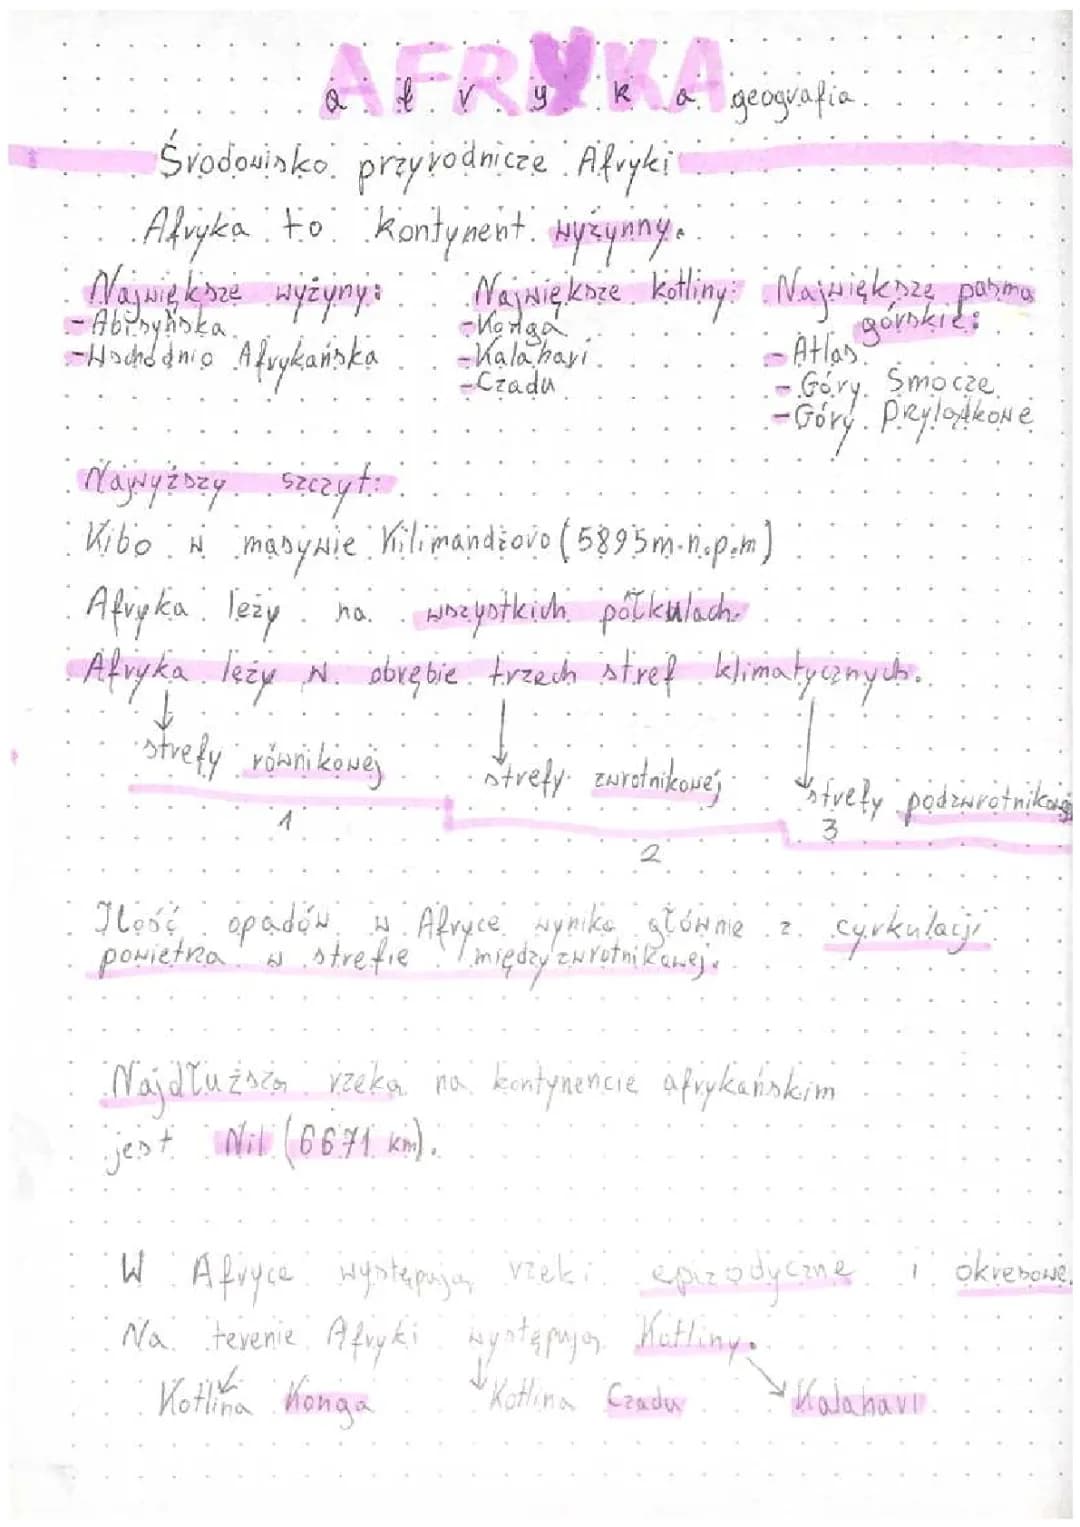 AFRYKA
afryka geografia
Środowisko przyrodnicze Afryki
Afryka to kontynent wyżynny.
Największe wyżyny:
- Abisyńska
- Wschodnio Afrykańska
Największe kotliny:
- Konga
- Kalahari
- Czadu
Największe pasma
górskie:
- Atlas
- Góry Smocze
- Góry Przylądkowe
Najwyższy szczyt:
Kibo w masywie Kilimandżaro (5895m.n.p.m)
Afryka leży na wszystkich półkulach.
Afryka leży w obrębie trzech stref klimatycznych.
strefy równikowej
1
strefy zwrotnikowej
2
strefy podzwrotnikowej
3
Ilość opadów w Afryce wynika głównie z cyrkulacji
powietrza w strefie międzyzwrotnikowej.
Najdłuższa rzeka na kontynencie afrykańskim
jest Nil (6671 km).
W Afryce występują rzeki epizodyczne i okresowe.
Na terenie Afryki występują Kotliny.
Kotlina Konga
Kotlina Czadu
Kalahari